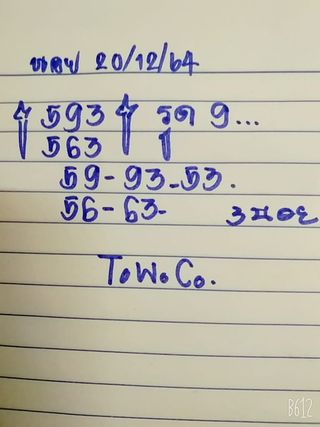 20/12/64
593 รูด 9...
563 1
59-93-53.
56-63-
ToWoCo.
B612